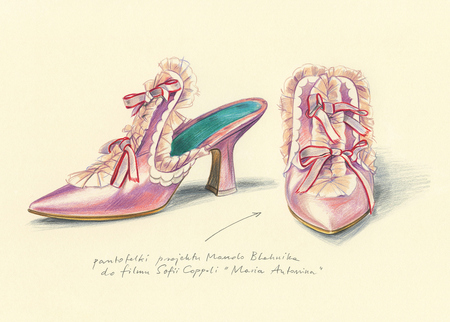 pantofelki projektu Manolo Blahnika
do filmu Sofii Coppoli "Maria Antonina"